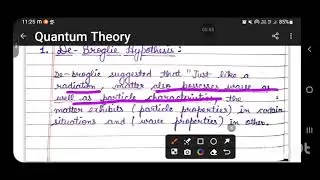 11:26
Quantum Theory
1. De-Broglie Hypothesis:
De-broglie suggested that "Just like a
radiation, matter also possesses wave as
well as particle characteristics, the
matter exhibits (particle properties) in certain
situations and (wave properties) in other.